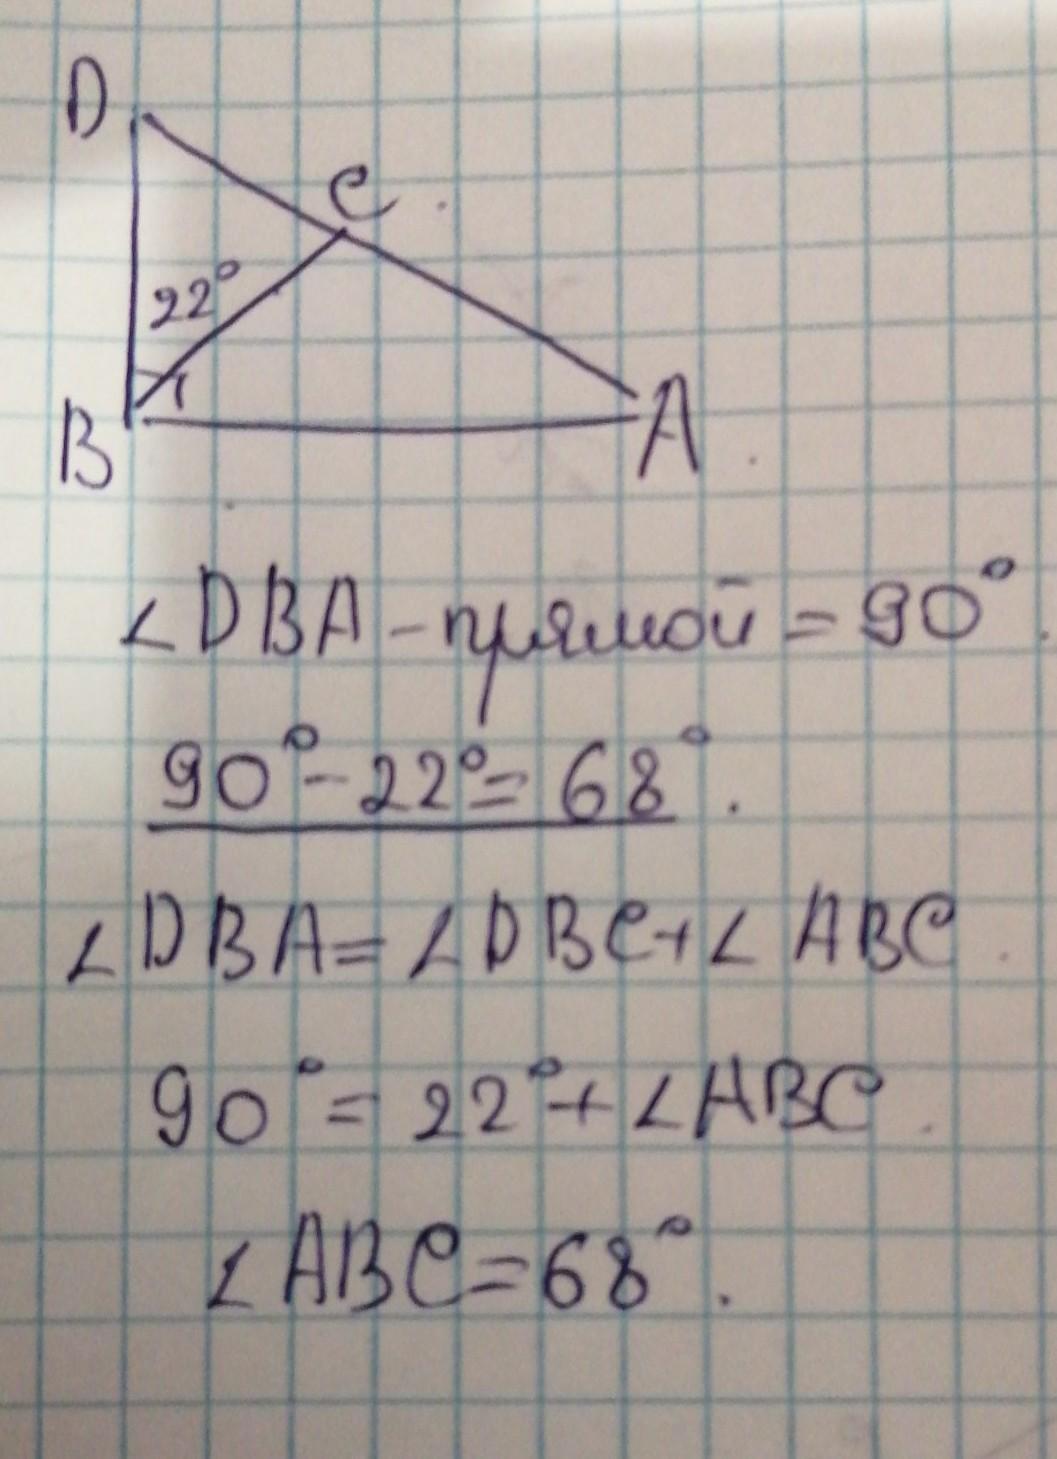 D
C
22°
B
A
∠DBA - прямой = 90°.
90° - 22° = 68°.
∠DBA = ∠DBC + ∠ABC.
90° = 22° + ∠ABC.
∠ABC = 68°.